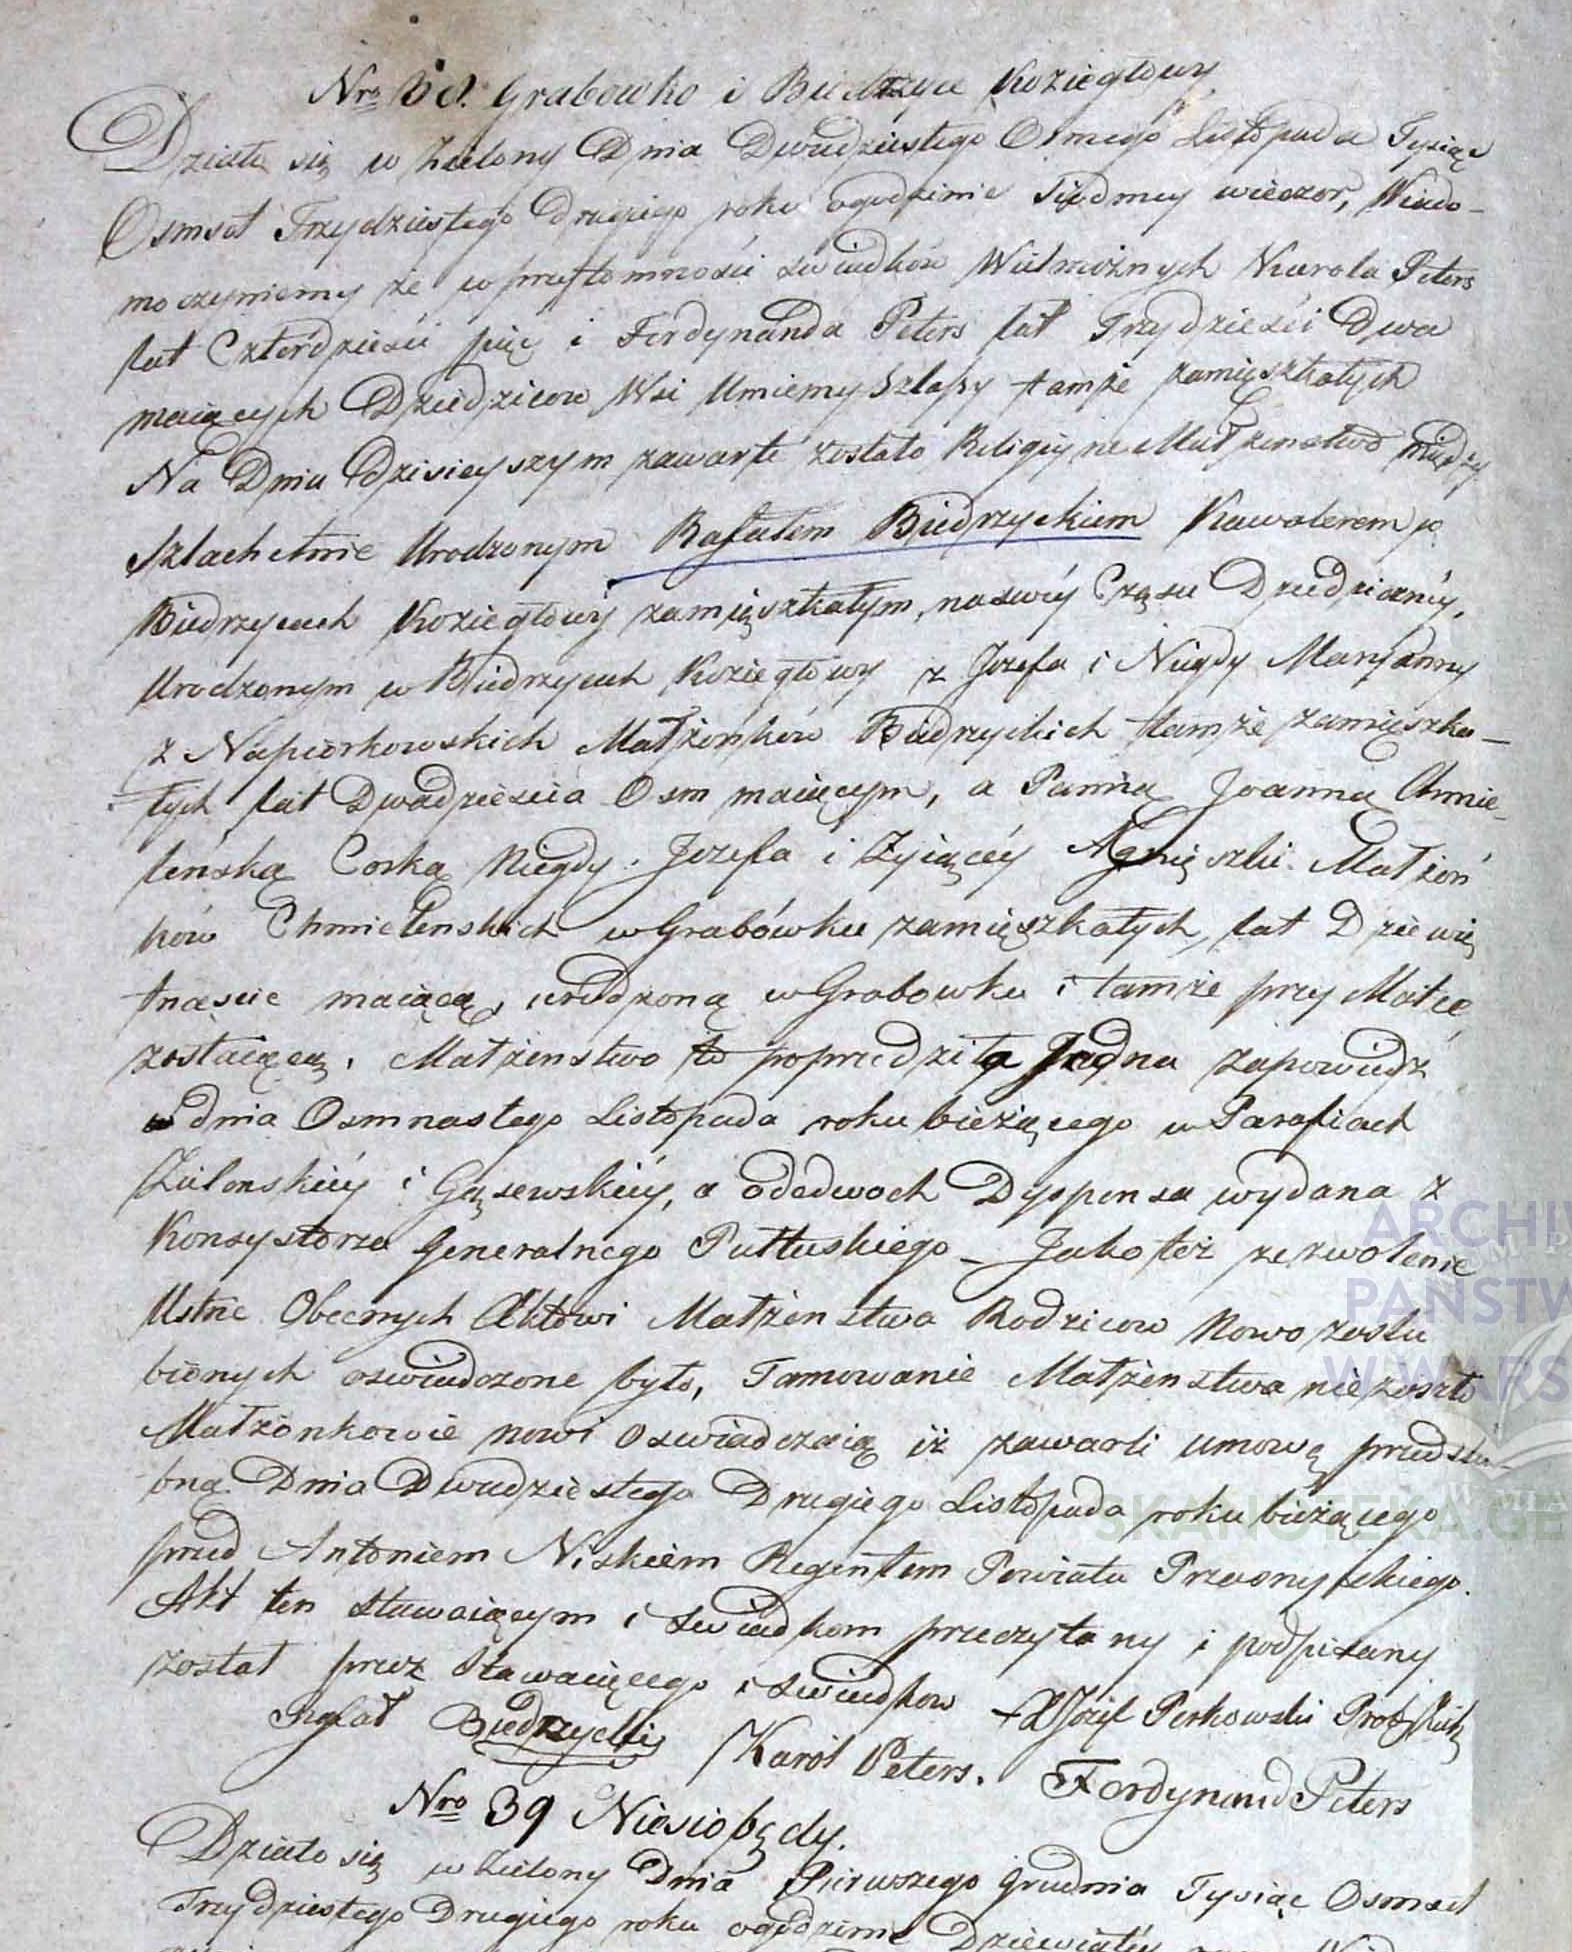 Nro 38. Grabowko i Biedrzyce Koziegłowy
Działo się w Zielony Dnia Dwudziestego Osmego Listopada Tysiąc
Osmset Trzydziestego Drugiego roku ogodzinie Siodmey wieczor, Wiado-
mo czyniemy że w przytomności swiadków Wielmożnych Karola Peters
lat Czterdzieści pięć i Ferdynanda Peters lat Trzydzieści Dwa
maiących Dziedziców Wsi tamże zamięszkałych
Na Dniu Dzisieyszym zawarte zostało Religiyne Małżenstwo między
Szlachetnie Urodzonym Rafałem Biedrzyckiem Kawalerem w
Biedrzycach Koziegłowy zamięszkałym, na swéy Częsci Dziedzicznéy,
Urodzonym w Biedrzycach Koziegłowy z Jozefa i Niegdy Maryanny
z Napiorkowskich Małżonków Biedrzyckich tamże zamięszka-
łych lat Dwadziescia Osm maiącym, a Panną Joanną Chmie-
lenską Corką Niegdy Jozefa i Zyiącéy Agnięszki Małżon
ków Chmielenskich w Grabówku zamięszkałych, lat Dziewię
tnascie maiącą, urodzoną w Grabowku i tamże przy Matce
zostaiącą. Małżenstwo to poprzedziła Jedna zapowiedz
w dnia Osmnastego Listopada roku bieżącego w Parafiach
Zielonskiéy i Gąsewskiéy, a odedwoch Dyspensa wydana z
Konsystorza Generalnego Pułtuskiego - Jako też zezwolenie
Ustne Obecnych Aktowi Małżenstwa Rodzicow Nowo zaslu
bionych oswiadczone było, Tamowanie Małżenstwa nie zaszło
Małżonkowie nowi Oswiadczaią iż zawarli umowę przedslu-
bną Dnia Dwudziestego Drugiego Listopada roku bieżącego
przed Antoniem Niskiem Regentem Powiatu Przasnyskiego.
Akt ten stawaiącym i swiadkom przeczytany i podpisany
został przez Stawaiącego i swiadkow X Józef Perkowski Prob.
Rafał Biedrzycki Karól Peters. Ferdynand Peters
Nro 39 Niesiobędy.
Działo się w Zielony Dnia Pierwszego Grudnia Tysiąc Osmset
Trzydziestego Drugiego roku ogodzinie Dziewiątéy
ARCHIW
PAŃSTW
W WARS
SKANOTEKA.GE